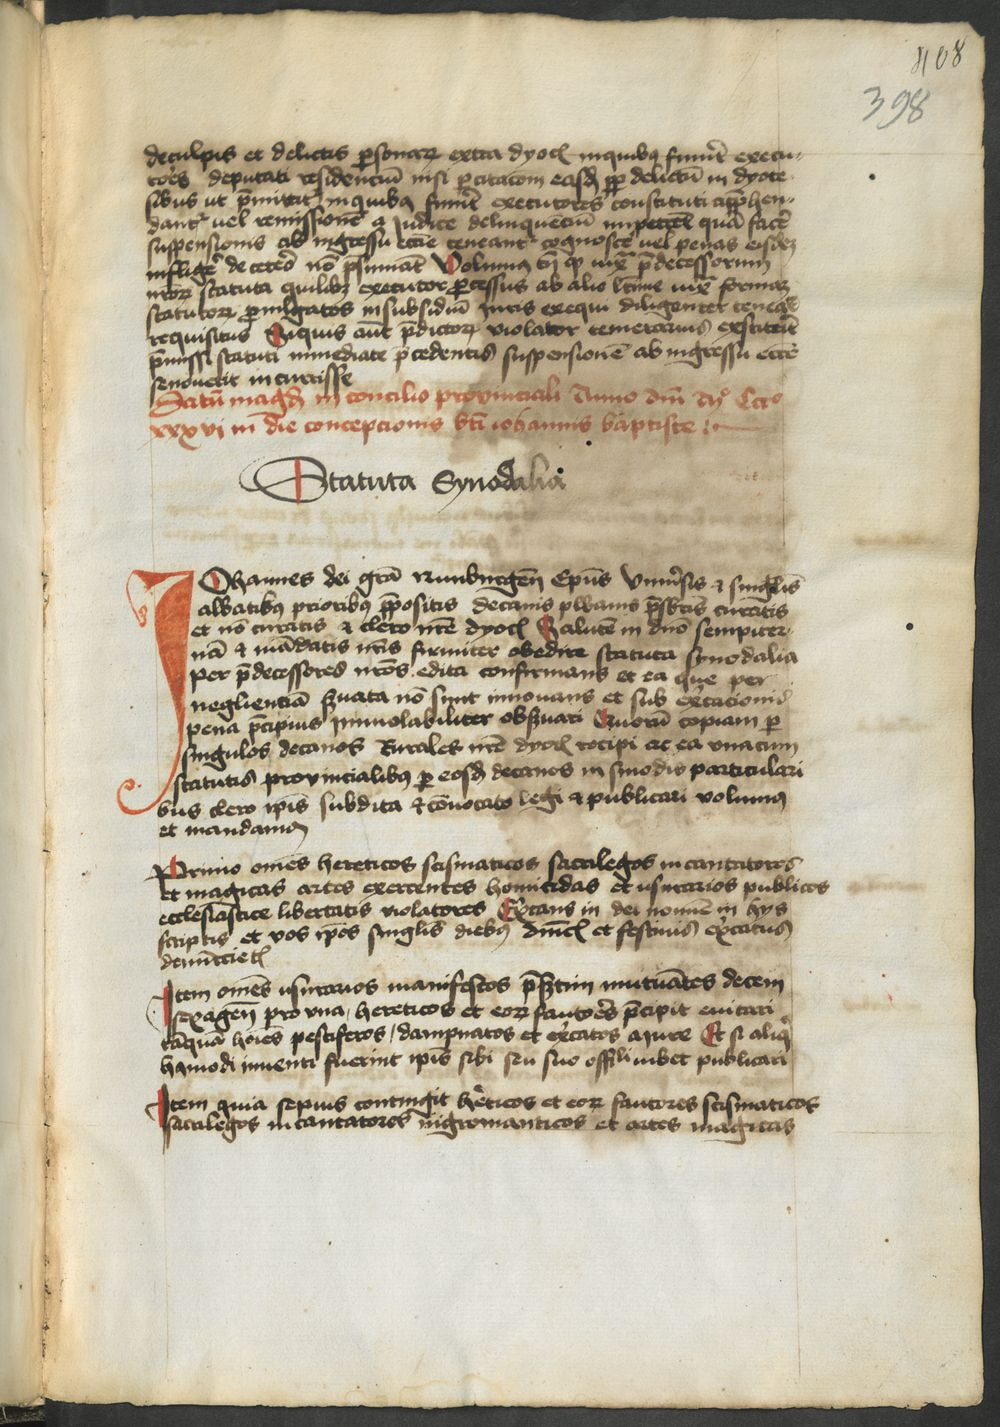 408
398
de culpis et delictis psonar extra dyoc in quibus fuerit execu-
tores deputati residencium nisi p citacom eosd pp delictum in dyote
sibus ut pmittit in quibus fuerit executores constituti apphen-
dant vel remissione a Judice delinquencium impetret qua facere
suspensionis ab ingressu eccie teneant cognosce vel penas eisdez
inflige de cetero no psumat Volumus tn q iux pdecessorum
nror statuta quilibz executor pcessus ab alio ltime iux formaz
statutor pmulgatos in subsidiu Juris exequi diligenter teneat
requisitus Siquis aut pdictor violator temerarius exstiterit
pmissi statuti inmediate pcedentis suspensione ab ingressu eccie
se noverit incurrisse
Datu magd in concilio provinciali Anno dni M ccc
xxxvi in die concepcionis bti iohannis baptiste
Statuta Synodalia
Johannes dei gra Nunburgen Epus Universis & singulis
abbatibus prioribus ppositis decanis plbanis psbris curatis
et no curatis & clero nre dyoc Salute in dno sempiter-
na & madatis nris firmiter obedire statuta synodalia
per pdecessores nros edita confirmans et ea que per
neglientia svata no sunt innovans et sub excacionis
pena pcipius inviolabiliter obsvari Quoru copiam p
singulos decanos Rurales nre dyoc recipi ac ea unacum
statutis provincialibus p eosd decanos in sinodis particulari
bus clero ipis subdita & covocato legi & publicari volumus
et mandamus
Primo omes hereticos scismaticos sacrilegos incantatores
et magicas artes exercentes homicidas et usurarios publicos
ecclesiastice libertatis violatores Excans in dei nomine in hys
scriptis et vos ipos singulis diebus dnicis et festivis excatus
denuncietis
Item omes usurarios manifestos psertim mutuates decem
sexagen pro una hereticos et eor fautores pcipit evitari
taqua hoies pestiferos / dampnatos et excatos a jure Et si aliq
hamodi inventi fuerint ipis sibi seu suo offili iubet publicari
Item quia sepius contingit heticos et eor fautores scismaticos
sacrilegos incantatores nigromanticos et artes magicas